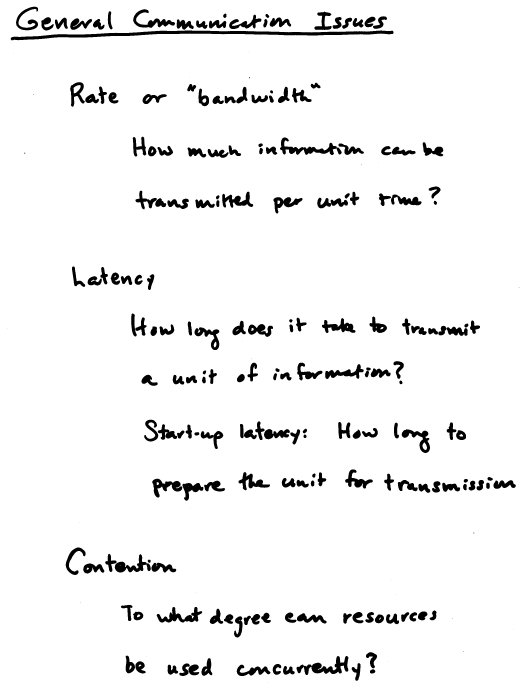 General Communication Issues
Rate or "bandwidth"
How much information can be
transmitted per unit time?
Latency
How long does it take to transmit
a unit of information?
Start-up latency: How long to
prepare the unit for transmission
Contention
To what degree can resources
be used concurrently?